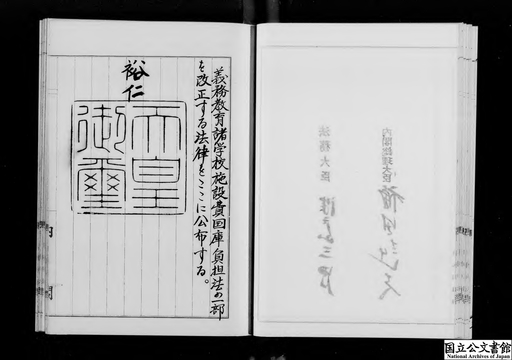 義務教育諸学校施設費国庫負担法の一部
を改正する法律をここに公布する。
裕仁
天皇
御璽
内閣
内閣総理大臣
法務大臣
国立公文書館
National Archives of Japan